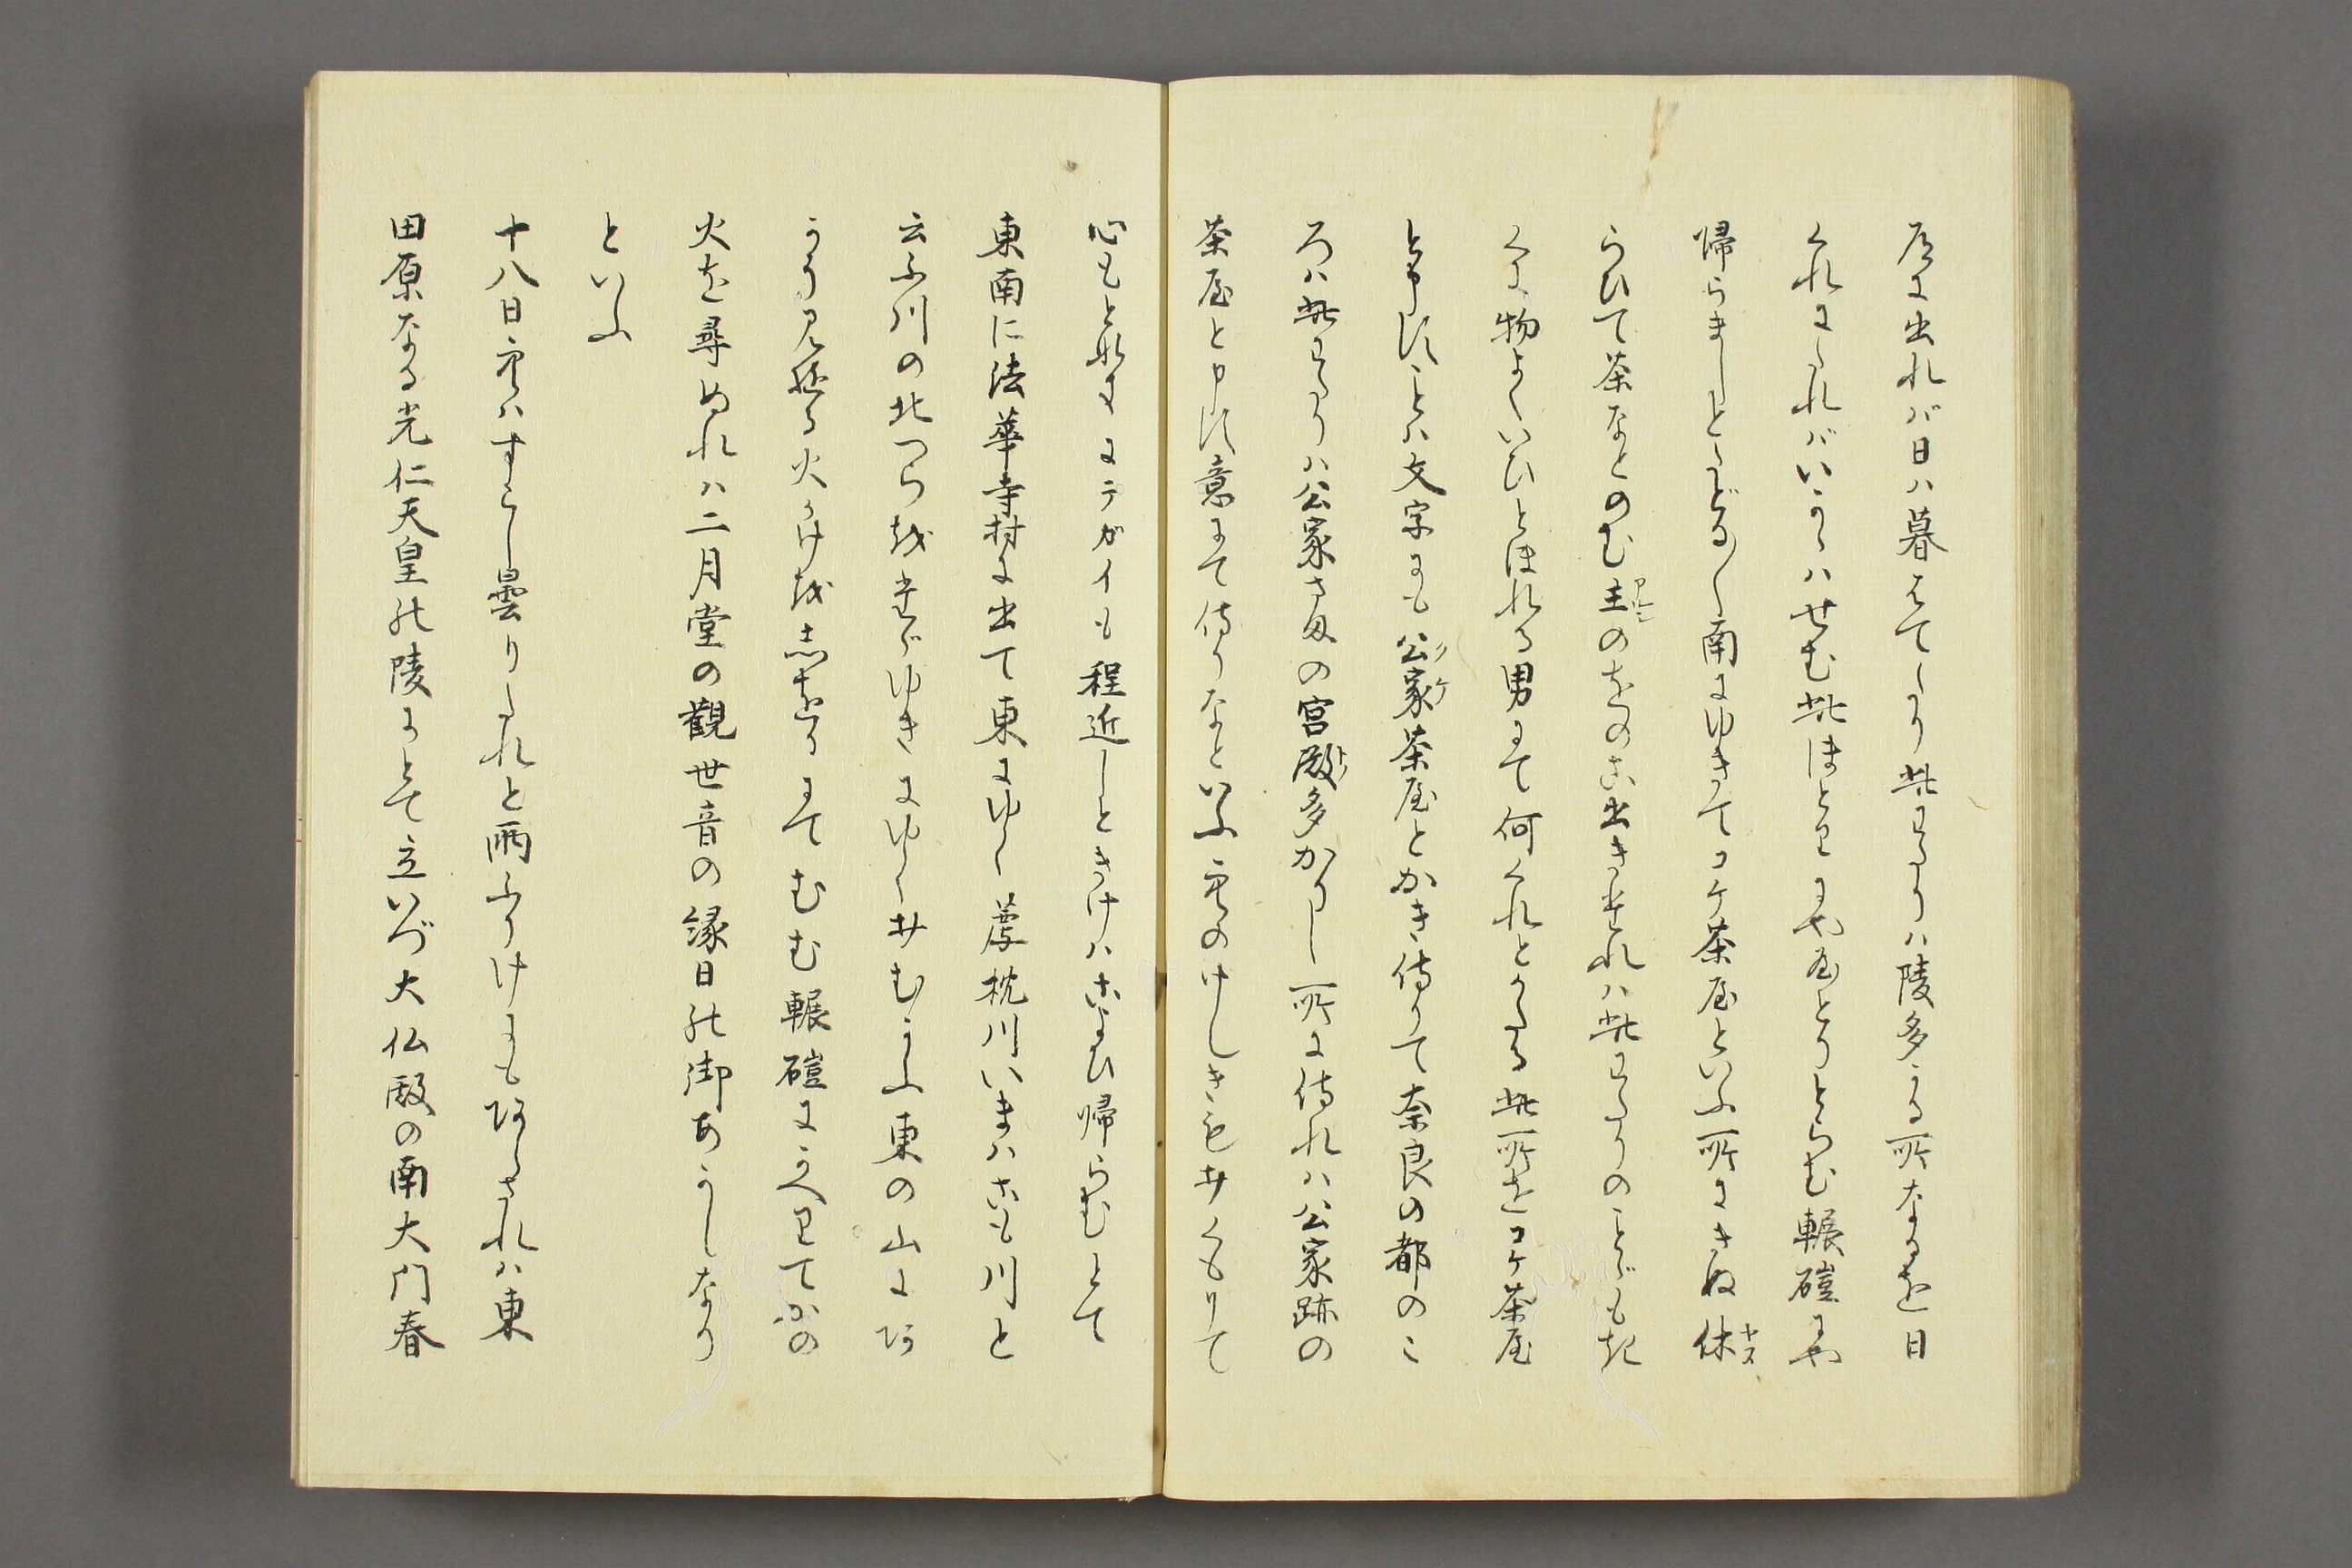 原に出れバ日ハ暮はてたり此わたりハ陵多かる所なるを日
くれにたれバいかゝハせむ此ほとりにや屋とりとらむ輾磑にや
帰らましとたどる〳〵南にゆきてコケ茶屋といふ所にきぬ休ヤス
らひて茶なとのむ主アルシのをのこ出きたれハ此わたりのことども聞
くに物よくいひとほれる男にて何くれとかたる此所をコケ茶屋
と申すことハ文字にも公家クケ茶屋とかき侍りて奈良の都のこ
ろハ此わたりハ公家さまの宮殿トノ多かりし所に侍れハ公家跡の
茶屋と申す意にて侍りなといふ空のけしきもサくもりて
心もとなきにテガイも程近しときけハこよひ帰らむとて
東南に法華寺村に出て東にゆく薦枕川いまハこも川と
云ふ川の北つらをたどゆきにゆくサむかふ東の山にア
かう見ゆる火かけをしるへにてむむ輾磑にかへりてかの
火を尋ぬれハ二月堂の觀世音の縁日の御あかしなり
といふ
十八日空ハすこし曇りたれと雨ふりけにもアらされハ東
田原なる光仁天皇の陵にとて立いづ大仏殿の南大門春